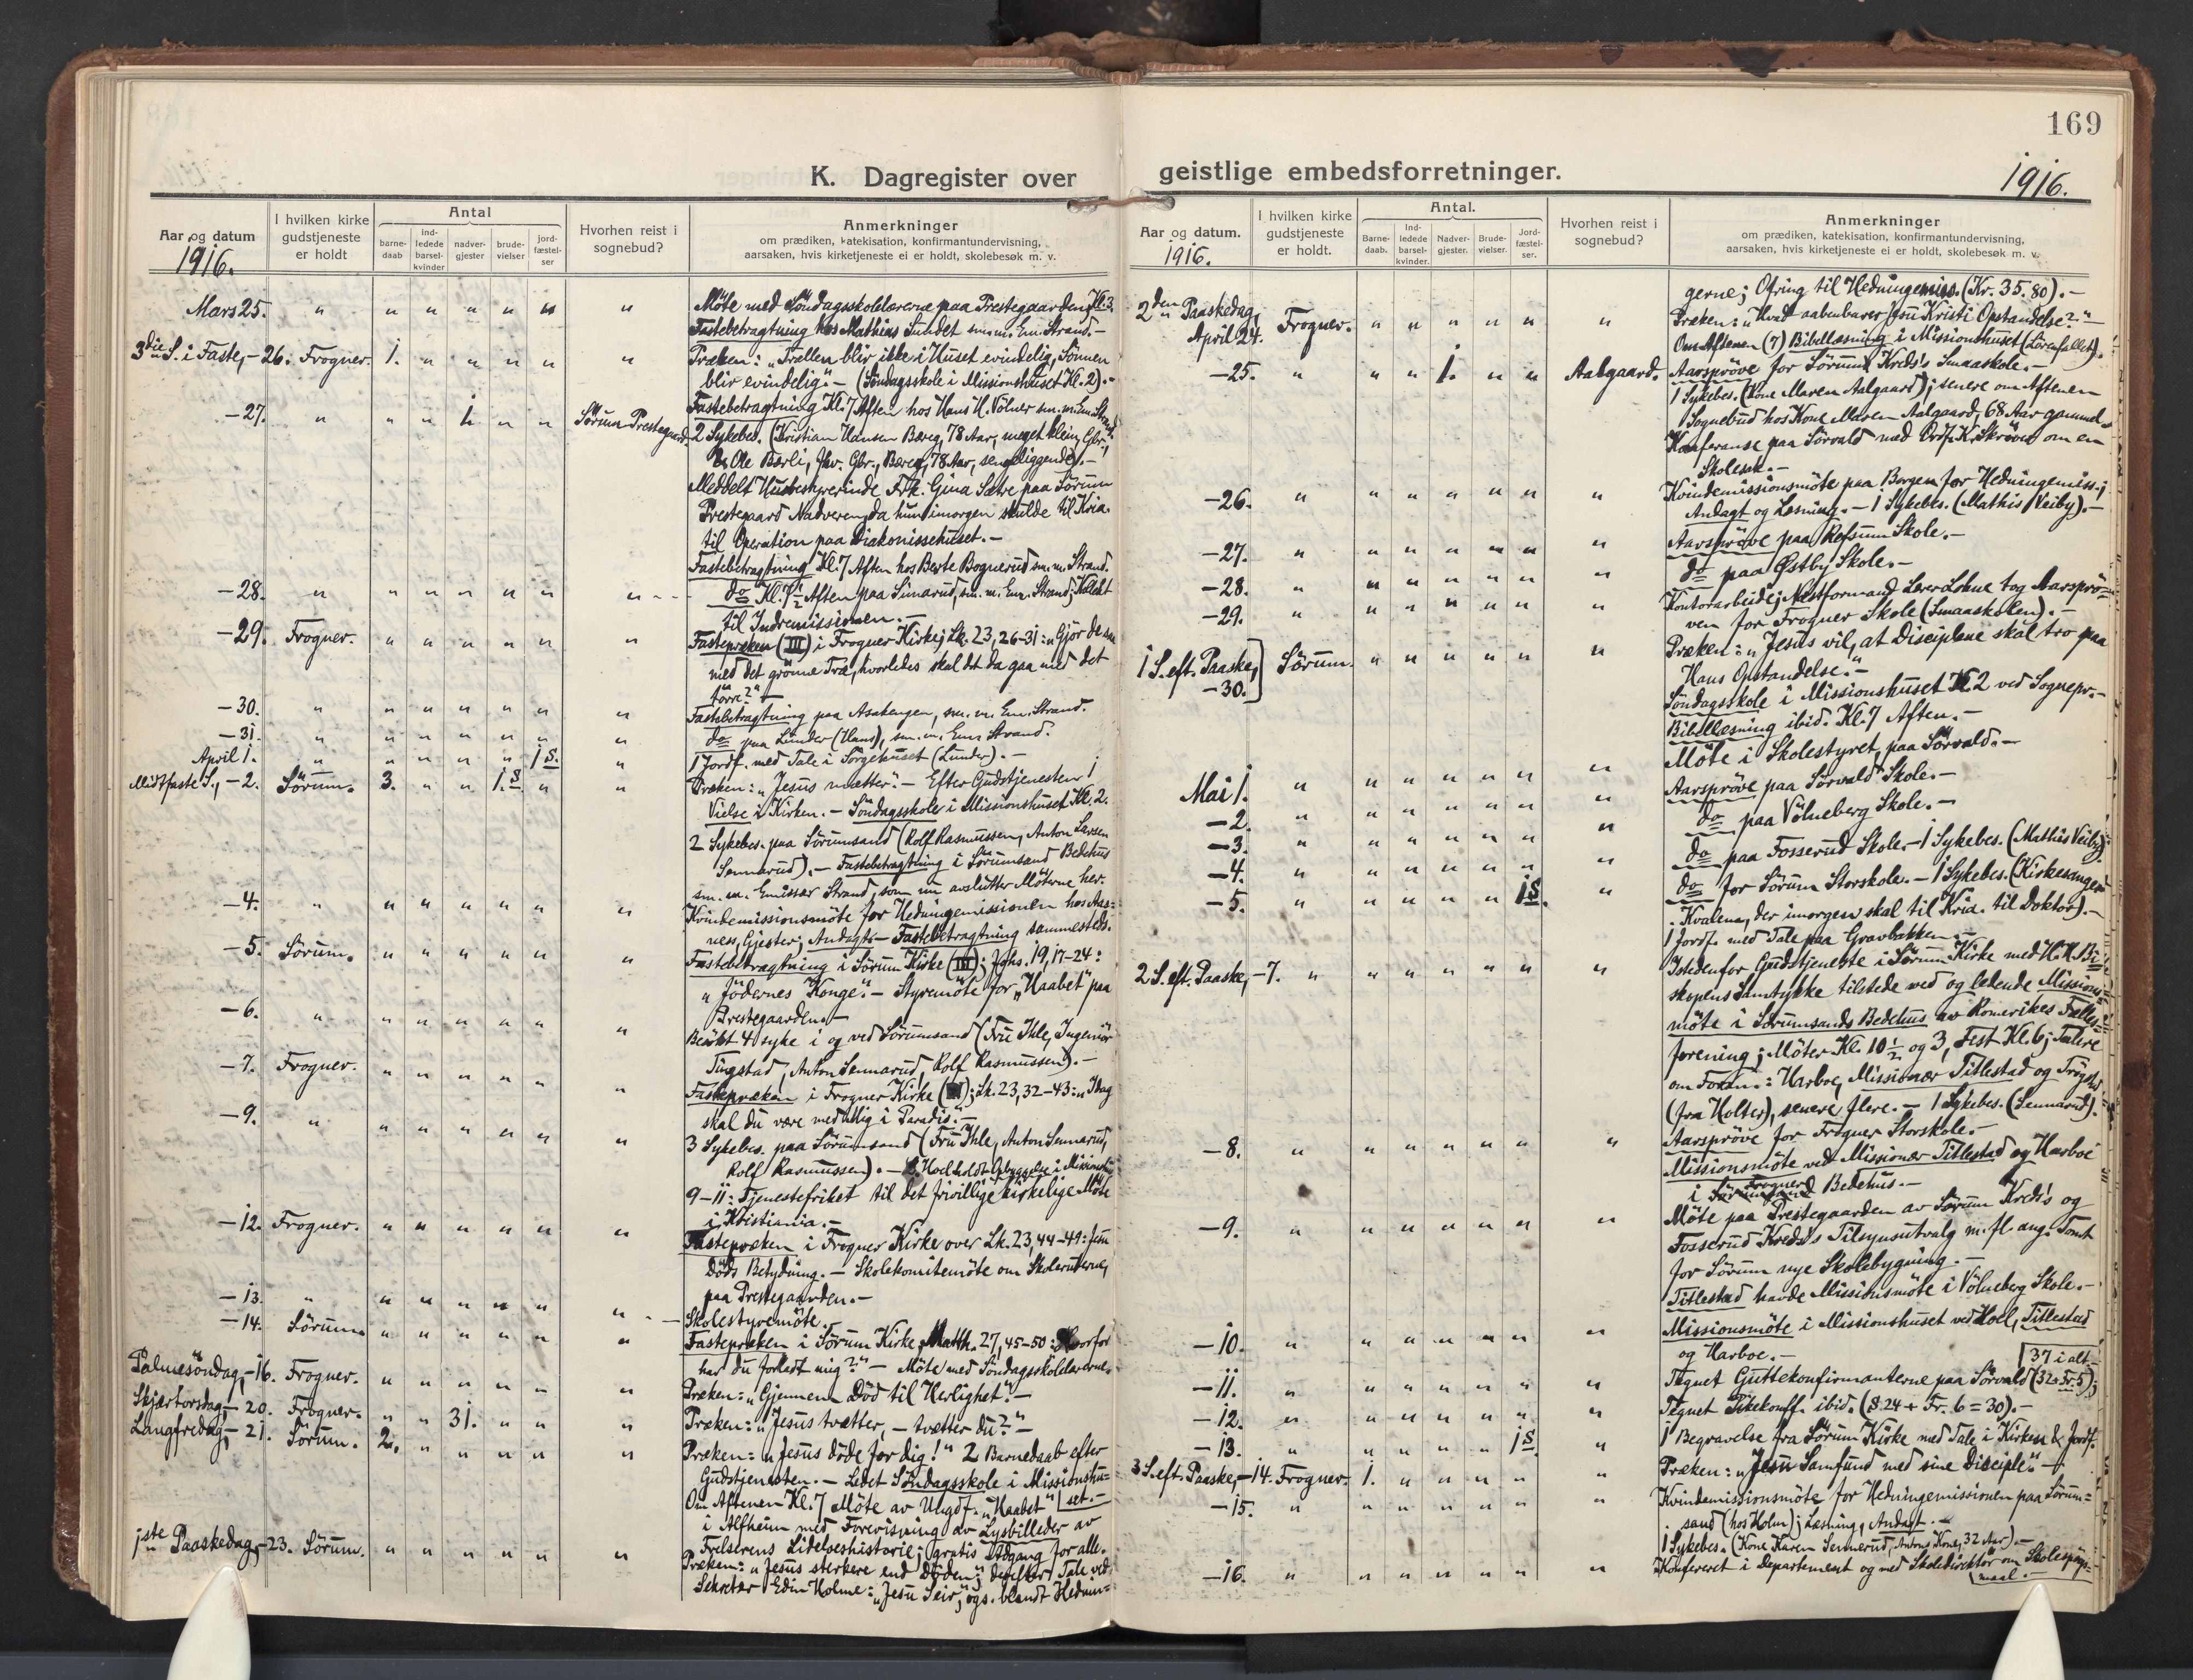 K. Dagregister over
Aar og datum
1916.
I hvilken kirke
gudstjeneste
er holdt
Antal
barne-
daab
ind-
ledede
barsel-
kvinder
nadver-
gjester
brude-
vielser
jord-
fæstel-
ser
Hvorhen reist i
sognebud?
Anmerkninger
om prædiken, katekisation, konfirmantundervisning,
aarsaken, hvis kirketjeneste ei er holdt, skolebesøk m. v.
Mars 25. " " " " " " " Möte med Söndagsskolelærerne paa Prestegaarden Kl. 3.
Fastebetragtning hos Mathias Sundet smm. Em. Strand.-
3die S. i Faste, - 26. Frogner. 1. " " " " " Præken: "Trællen blir ikke i Huset evindelig, Sönnen
blir evindelig".- (Söndagsskole i Missionshuset Kl. 2).-
Fastebetragtning Kl. 7 Aften hos Hans H. Völner sm. m. Em. Strand.
- 27. " " " 1. " " Sörum Prestegaard 2 Sykebes. (Kristian Hansen Bæreg, 78 Aar, meget klein, Gbr.,
Ole Bærli, fhv. Gbr., Bæreg, 78 Aar, sengeliggende).-
Meddelt Husbestyrerinde Frk. Gina Sætre paa Sörum
Prestegaard Nadveren, da hun imorgen skulde til Kria.
til Operation paa Diakonissehuset.-
Fastebetragtning Kl. 7 Aften hos Berte Bognerud sm. m. Strand.
- 28. " " " " " " " do Kl. 7½ Aften paa Simarud, sm. m. Em. Strand; Kollekt
til Indremissionen.-
- 29. Frogner. " " " " " " Fastepræken (III) i Frogner Kirke; Lk. 23, 26-31: "Gjör de saa
med det grönne Træ, hvorledes skal det da gaa med det
törre?"-
- 30. " " " " " " " Fastebetragtning paa Asakengen, sm. m. Em. Strand.
- 31. " " " " " " " do paa Lunder (Hans), sm. m. Em. Strand.
April 1. " " " " " 1 S. " 1 Jordf. med Tale i Sörgehuset (Lunder).-
Midtfaste S., - 2. Sörum. 3. " " 1. S. " " Præken: "Jesus mætter".- Efter Gudstjenesten 1
Vielse i Kirken.- Söndagsskole i Missionshuset Kl. 2.
2 Sykebes. paa Sörumsand (Rolf Rasmussen, Anton Larsen
Sennarud).- Fastebetragtning i Sörumsand Bedehus
sm. m. Emissær Strand, som nu avslutter Möterne her.
- 4. " " " " " " " Kvindemissionsmöte for Hedningemissionen hos Aas-
ness, Gjester; Andagt.- Fastebetragtning sammesteds.
- 5. Sörum. " " " " " " Fastebetragtning i Sörum Kirke (III); Johs. 19, 17-24:
"Jödernes Konge".- Styremöte for "Haabet" paa
Prestegaarden.-
- 6. " " " " " " " Besökt 4 syke i og ved Sörumsand (Fru Ihle, Ingeniör
Tingstad, Anton Sennarud, Rolf Rasmussen).-
- 7. Frogner. " " " " " " Fastepræken i Frogner Kirke; Lk. 23, 32-43: "Idag
skal du være med Mig i Paradis".-
- 9. " " " " " " " 3 Sykebes. paa Sörumsand (Fru Ihle, Anton Sennarud,
Rolf Rasmussen).- Hoel holdt Opbyggelse i Missionshus
9-11: Tjenestefrihet til det frivillige kirkelige Möte
i Kristiania.-
- 12. Frogner. " " " " " " Fastepræken i Frogner Kirke over Lk. 23, 44-49: Jesu
Döds Betydning.- Skolekomitemöte om Skoleruterne,
paa Prestegaarden.-
- 13. " " " " " " " Skolestyremöte.
- 14. Sörum. " " " " " " Fastepræken i Sörum Kirke, Matth. 27, 45-50: "Hvorfor
har du forladt mig?"- Möte med Söndagsskolelærerne.
Palmesöndag, - 16. Frogner. " " " " " " Præken: "Gjennem Död til Herlighet".-
Skjærtorsdag, - 20. Frogner. " " 31. " " " Præken: "Jesus tvætter, - tvætter du?"-
Langfredag, - 21. Sörum. 2. " " " " " Præken: "Jesus döde for dig!" 2 Barnedaab efter
Gudstjenesten.- Ledet Söndagsskole i Missionshu-
Om Aftenen Kl. 7 Möte av Ungdf. "Haabet" set.-
i Alfheim med Forevisning av Lysbilleder av
Frelserens Lidelseshistorie; gratis Adgang for alle.
1ste Paaskedag, - 23. Sörum. " " " " " " Præken: "Jesus sterkere end Döden"; derefter Tale ved
Sekretær Edin Holme: "Jesu Seir", ogs. blandt Hednin-
169
geistlige embedsforretninger.
1916.
Aar og datum.
1916.
I hvilken kirke
gudstjeneste
er holdt.
Antal.
Barne-
daab.
Ind-
ledede
barsel-
kvinder.
Nadver-
gjester.
Brude-
vielser.
Jord-
fæstel-
ser.
Hvorhen reist i
sognebud?
Anmerkninger
om prædiken, katekisation, konfirmantundervisning,
aarsaken, hvis kirketjeneste ei er holdt, skolebesøk m. v.
gerne; Ofring til Hedningemiss. (Kr. 35.80).-
2den Paaskedag,
April 24. Frogner. " " " " " " Præken: "Hvad aabenbarer Jesu Kristi Opstandelse?"-
Om Aftenen (7) Bibellæsning i Missionshuset (Lörenfallet).
- 25. " " " 1. " " Aalgaard. Aarspröve for Sörum Kreds's Smaaskole.-
1 Sykebes. (Kone Maren Aalgaard); senere om Aftenen
Sognebud hos Kone Maren Aalgaard, 68 Aar gammel.
Konferanse paa Sörvald med Ordf. K. Skröver om en
Skolesak.-
- 26. " " " " " " " Kvindemissionsmöte paa Borgen for Hedningemiss.;
Andagt og Læsning.- 1 Sykebes. (Mathis Veiby).-
- 27. " " " " " " " Aarspröve paa Refsum Skole.-
- 28. " " " " " " " do paa Østby Skole.-
- 29. " " " " " " " Kontorarbeide; Næstformand Lærer Lohne tog Aarsprö-
ven for Frogner Skole (Smaaskolen).-
1 S. eft. Paaske,
- 30. Sörum. " " " " " " Præken: "Jesus vil, at Disciplene skal tro paa
Hans Opstandelse".-
Söndagsskole i Missionshuset Kl. 2 ved Sognepr.-
Bibellæsning ibid. Kl. 7 Aften.-
Mai 1. " " " " " " " Möte i Skolestyret, paa Sörvald.-
Aarspröve paa Sörvald Skole.-
- 2. " " " " " " " do paa Völneberg Skole.-
- 3. " " " " " " " do paa Fosserud Skole.- 1 Sykebes. (Mathis Veiby).
- 4. " " " " " " " do for Sörum Storskole.- 1 Sykebes. (Kirkesanger
Kvalene, der imorgen skal til Kria. til Doktor).-
- 5. " " " " " 1 S. " 1 Jordf. med Tale paa Gravbakken.-
2 S. eft. Paaske, - 7. " " " " " " " Istedenfor Gudstjeneste i Sörum Kirke med H. H. Bi-
skopens Samtykke tilstede ved og ledende Missions-
möte i Sörumsands Bedehus av Romerikes Fælles-
forening; Möter Kl. 10½ og 3, Fest Kl. 6; Talere
om Form.: Harboe, Missionær Titlestad og Trögstad
(fra Holter), senere flere.- 1 Sykebes. (Sennarud).
- 8. " " " " " " " Aarspröve for Frogner Storskole.-
Missionsmöte ved Missionær Titlestad og Harboe
i Frogner Bedehus.-
- 9. " " " " " " " Möte paa Prestegaarden av Sörum Kreds's og
Fosserud Kreds's Tilsynsutvalg m. fl. ang. Tomt
for Sörum nye Skolebygning.-
Titlestad havde Missionsmöte i Völneberg Skole.-
- 10. " " " " " " " Missionsmöte i Missionshuset ved Hoel, Titlestad
og Harboe.- 37 i alt
- 11. " " " " " " " Tegnet Guttekonfirmanterne paa Sörvald (32+Fr. 5);
- 12. " " " " " " " Tegnet Pikekonf. ibid. (S. 24 + Fr. 6 = 30).-
- 13. " " " " " 1 S. " 1 Begravelse fra Sörum Kirke med Tale i Kirken & Jordf.
3 S. eft. Paaske, - 14. Frogner. 1. " " " " " Præken: "Jesu Samfund med sine Disciple".-
- 15. " " " " " " " Kvindemissionsmöte for Hedningemissionen paa Sörum-
sand (hos Holm); Læsning, Andagt.-
1 Sykebes. (Kone Karen Sennerud, Antons Kone, 32 Aar).-
- 16. " " " " " " " Konfereret i Departement og ved Skoledirektör om Skolespörs-
maal.-